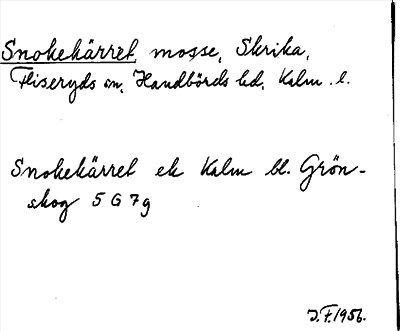 Snokekärret, mosse, Skrika,
Fliseryds sn, Handbörds hd, Kalm. l.
Snokekärret ek Kalm bl. Grön-
skog 5 G 7g
J.F. 1956.